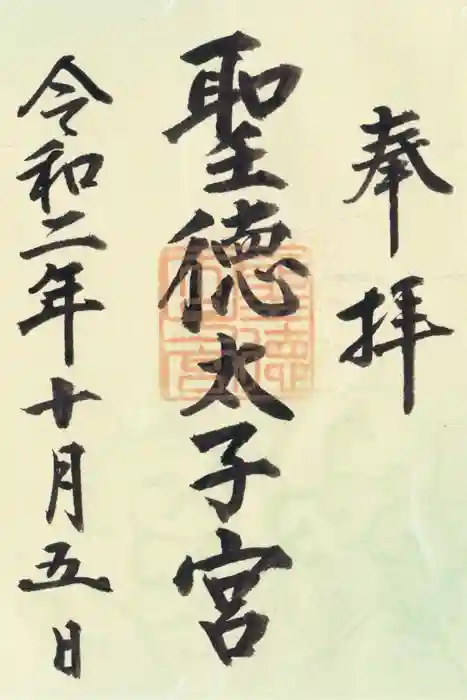 奉拝
聖徳太子宮
令和二年十月五日